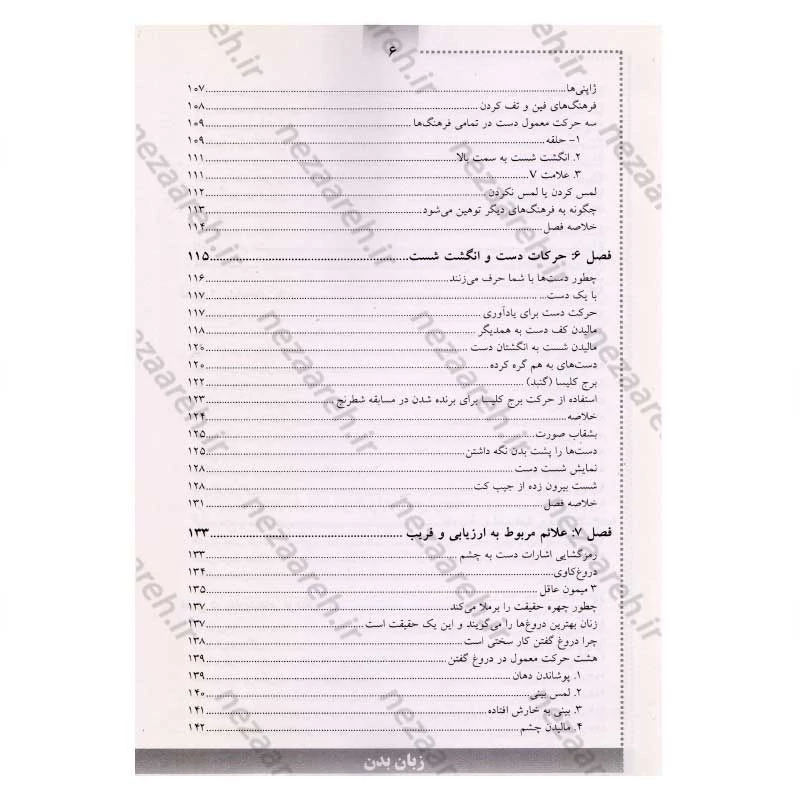 ۶
ژاپنی‌ها........۱۰۷
فرهنگ‌های فین و تف کردن........۱۰۸
سه حرکت معمول دست در تمامی فرهنگ‌ها........۱۰۹
۱- حلقه........۱۰۹
۲. انگشت شست به سمت بالا........۱۱۱
۳. علامت V........۱۱۱
لمس کردن یا لمس نکردن........۱۱۲
چگونه به فرهنگ‌های دیگر توهین می‌شود........۱۱۳
خلاصه فصل........۱۱۴
فصل ۶: حرکات دست و انگشت شست........۱۱۵
چطور دست‌ها با شما حرف می‌زنند........۱۱۶
با یک دست........۱۱۷
حرکت دست برای یادآوری........۱۱۷
مالیدن کف دست به همدیگر........۱۱۸
مالیدن شست به انگشتان دست........۱۲۰
دست‌های به هم گره کرده........۱۲۰
برج کلیسا (گنبد)........۱۲۲
استفاده از حرکت برج کلیسا برای برنده شدن در مسابقه شطرنج........۱۲۳
خلاصه........۱۲۴
بشقاب صورت........۱۲۵
دست‌ها را پشت بدن نگه داشتن........۱۲۵
نمایش شست دست........۱۲۸
شست بیرون زده از جیب کت........۱۲۸
خلاصه فصل........۱۳۱
فصل ۷: علائم مربوط به ارزیابی و فریب........۱۳۳
رمزگشایی اشارات دست به چشم........۱۳۳
دروغ‌کاوی........۱۳۴
۳ میمون عاقل........۱۳۵
چطور چهره حقیقت را برملا می‌کند........۱۳۷
زنان بهترین دروغ‌ها را می‌گویند و این یک حقیقت است........۱۳۷
چرا دروغ گفتن کار سختی است........۱۳۸
هشت حرکت معمول در دروغ گفتن........۱۳۹
۱. پوشاندن دهان........۱۳۹
۲. لمس بینی........۱۴۰
۳. بینی به خارش افتاده........۱۴۱
۴. مالیدن چشم........۱۴۲
زبان بدن
nezaareh.ir